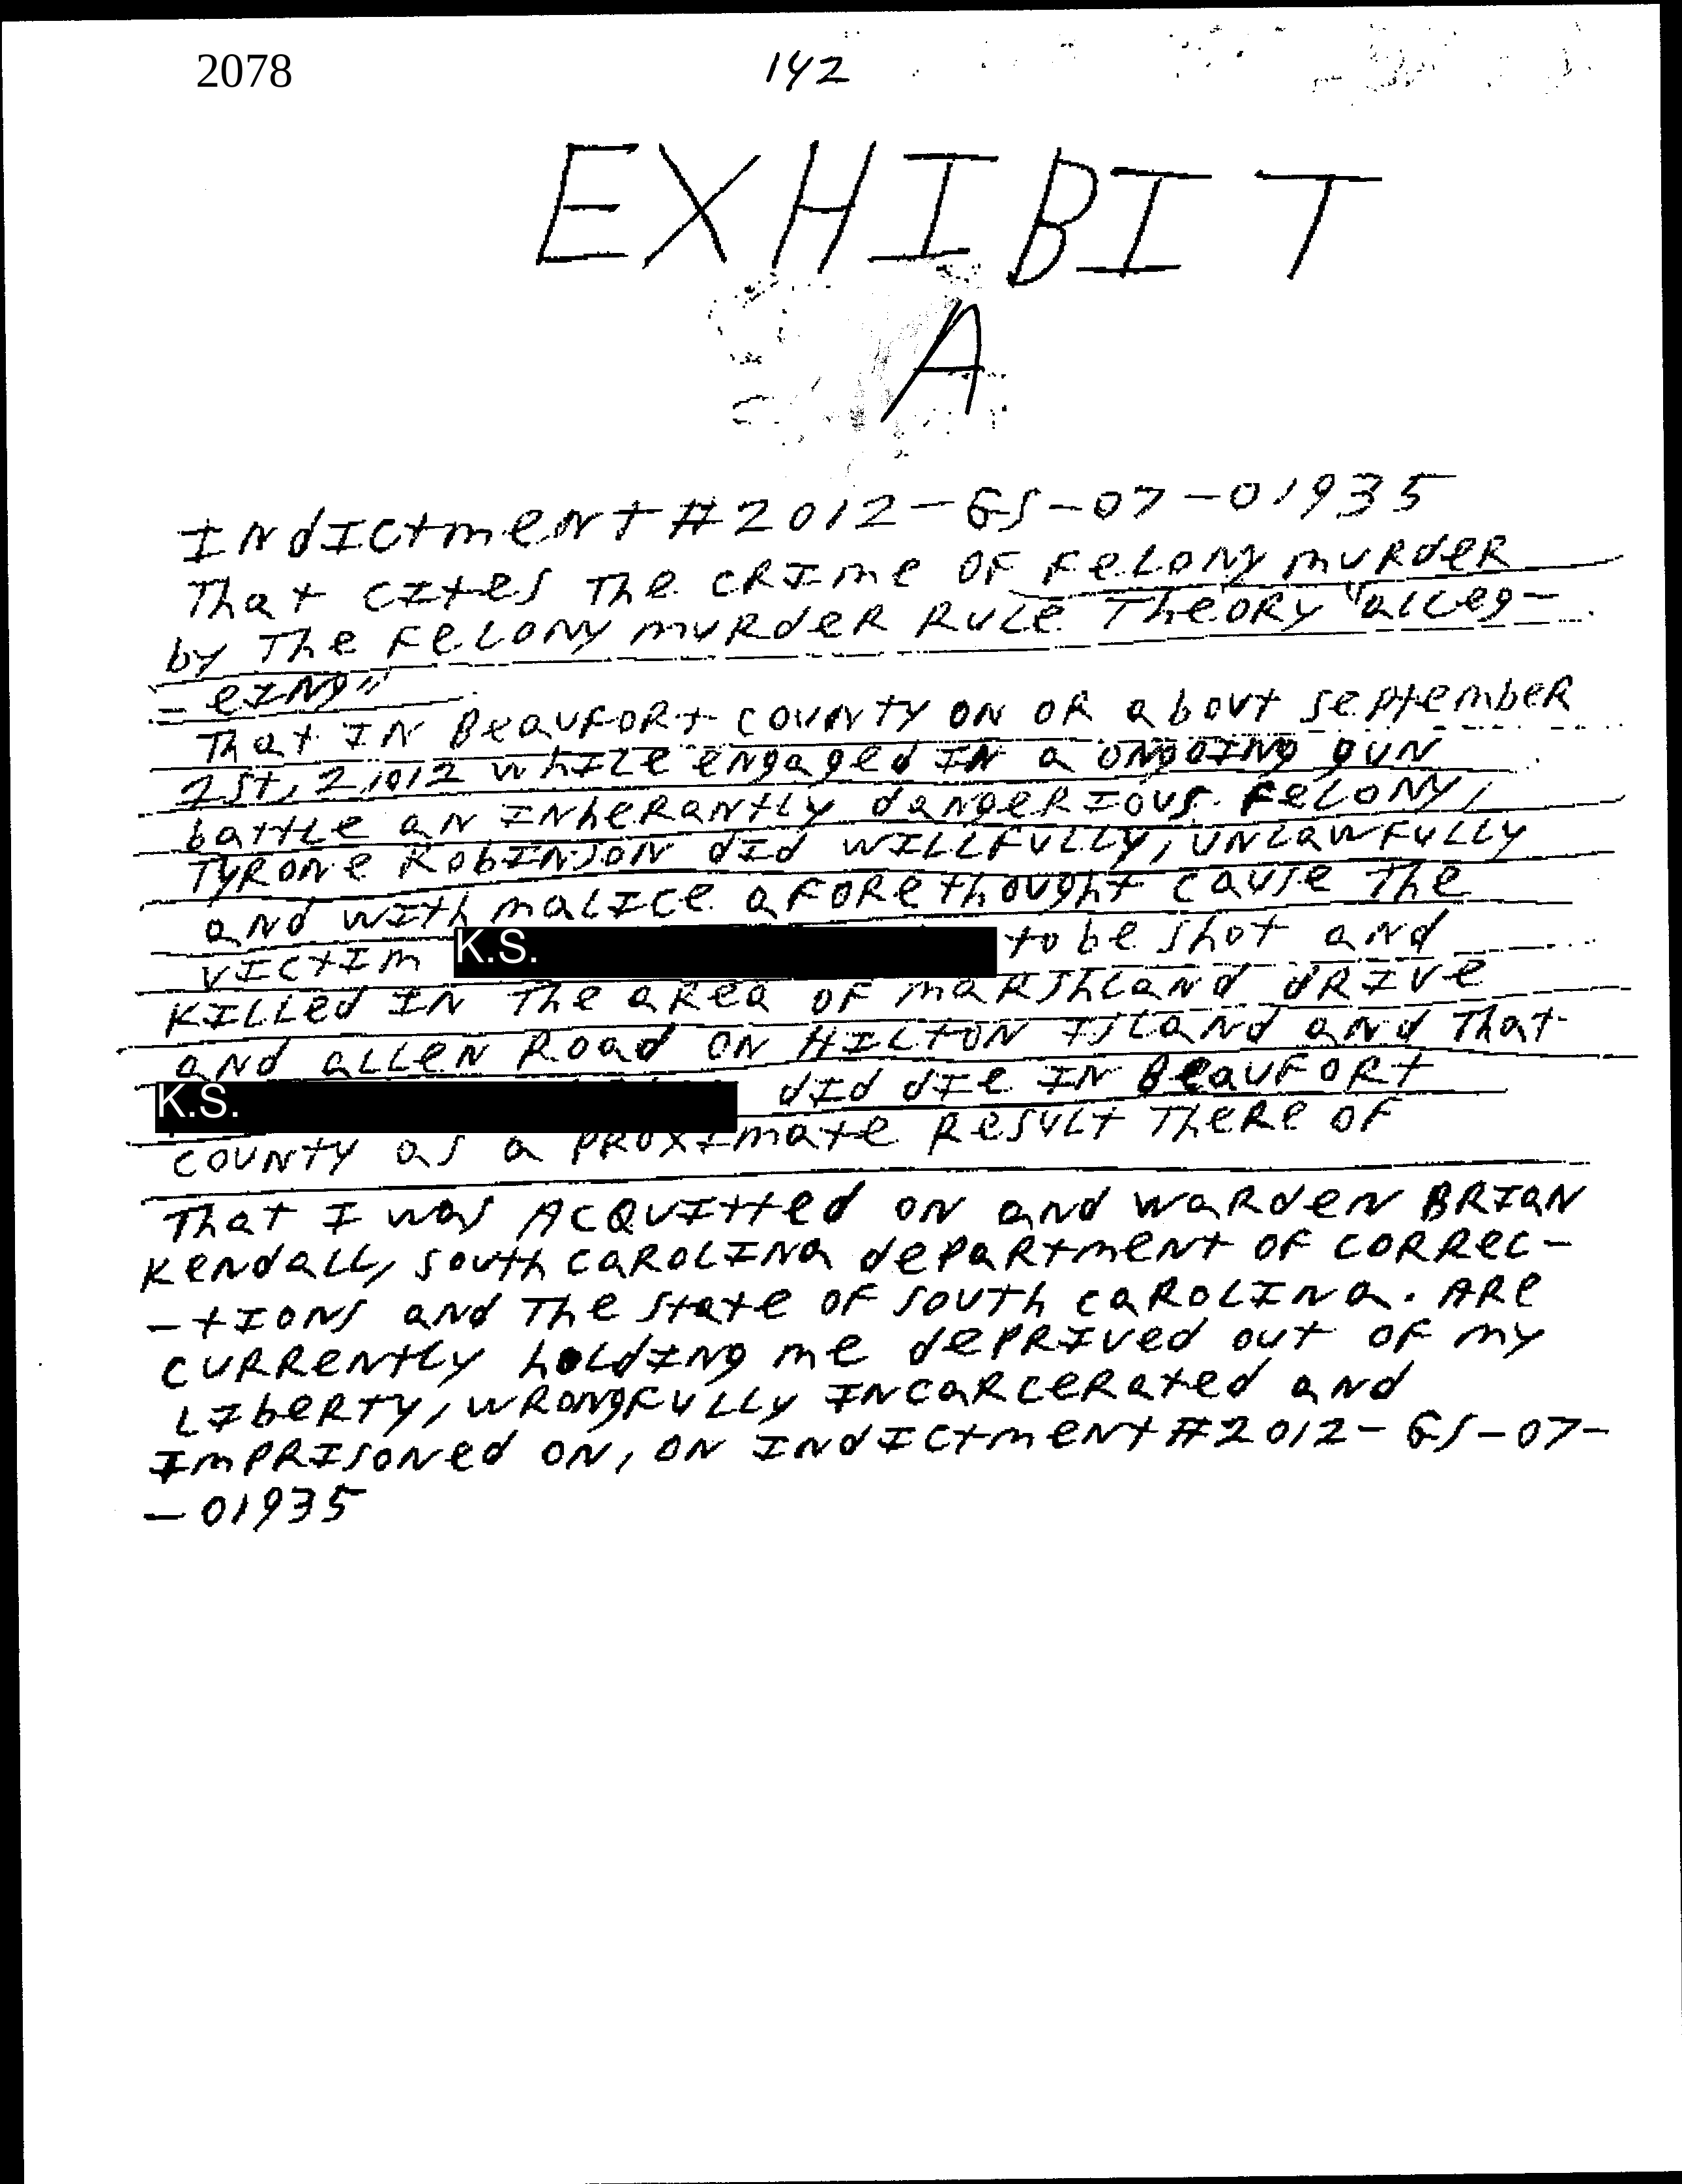 2078
142
EXHIBIT
A
Indictment #2012-GS-07-01935
That cites the crime of felony murder
by the felony murder rule theory "alleg-
-eing"
That in Beaufort County on or about September
1st, 2012 while engaged in a ongoing gun
battle an inherantly dangerious felony,
Tyrone Robinson did willfully, unlawfully
and with malice aforethought cause the
victim K.S. to be shot and
killed in the area of Marshland Drive
and Allen Road on Hilton Island and that
K.S. did die in Beaufort
County as a proximate result there of
That I was Acquitted on and Warden Brian
Kendall, South Carolina Department of Correc-
-tions and the State of South Carolina. Are
currently holding me deprived out of my
liberty, wrongfully incarcerated and
imprisoned on, on Indictment #2012-GS-07-
-01935